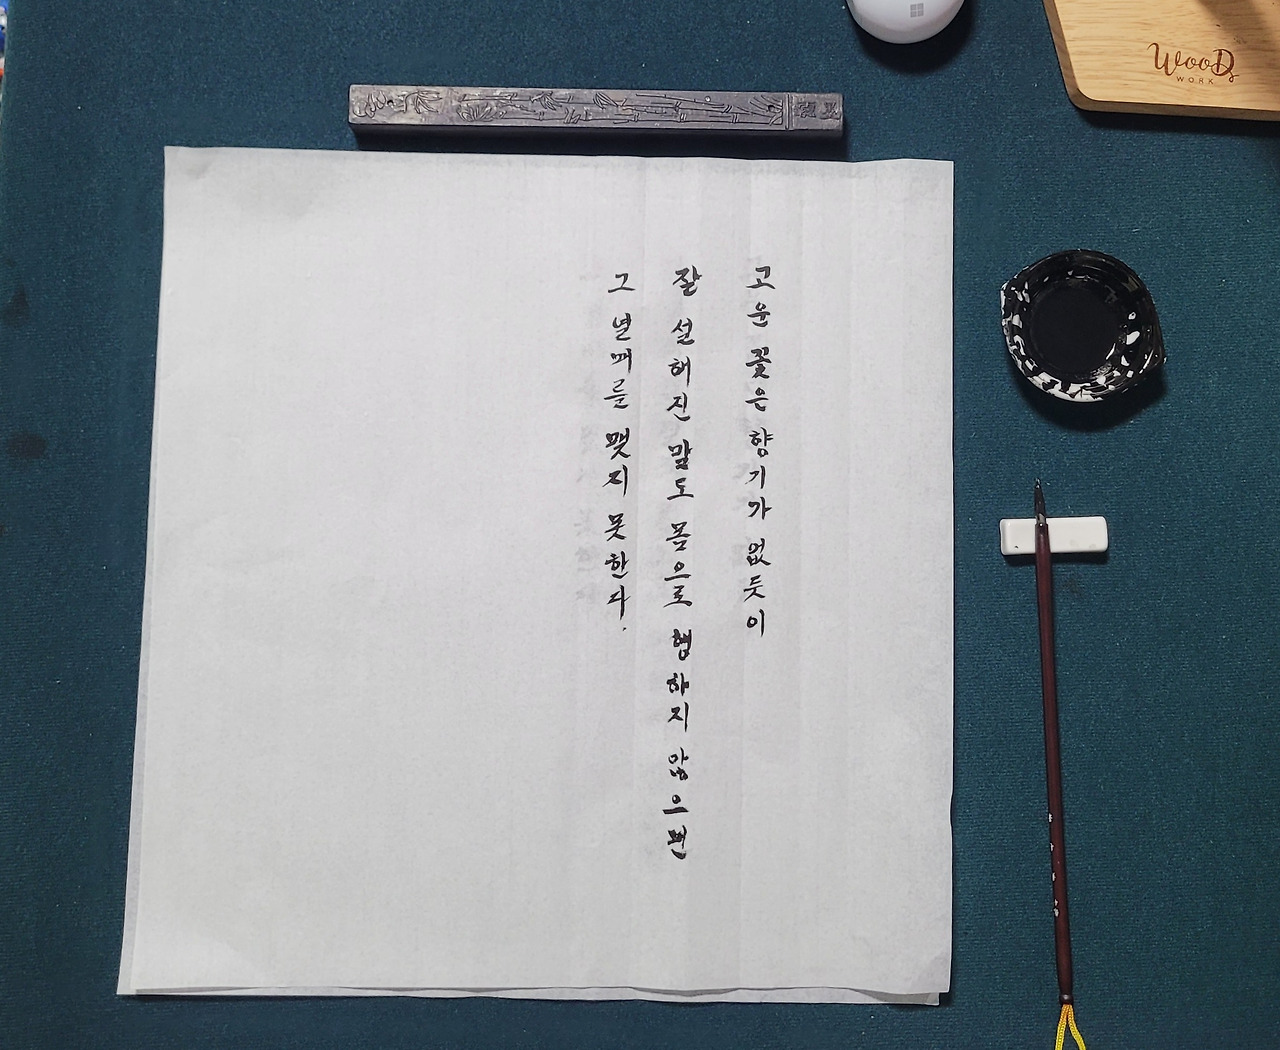 고운 꽃은 향기가 없듯이
잘 설해진 말도 몸으로 행하지 않으면
그 열매를 맺지 못한다.
WooDs
WORK